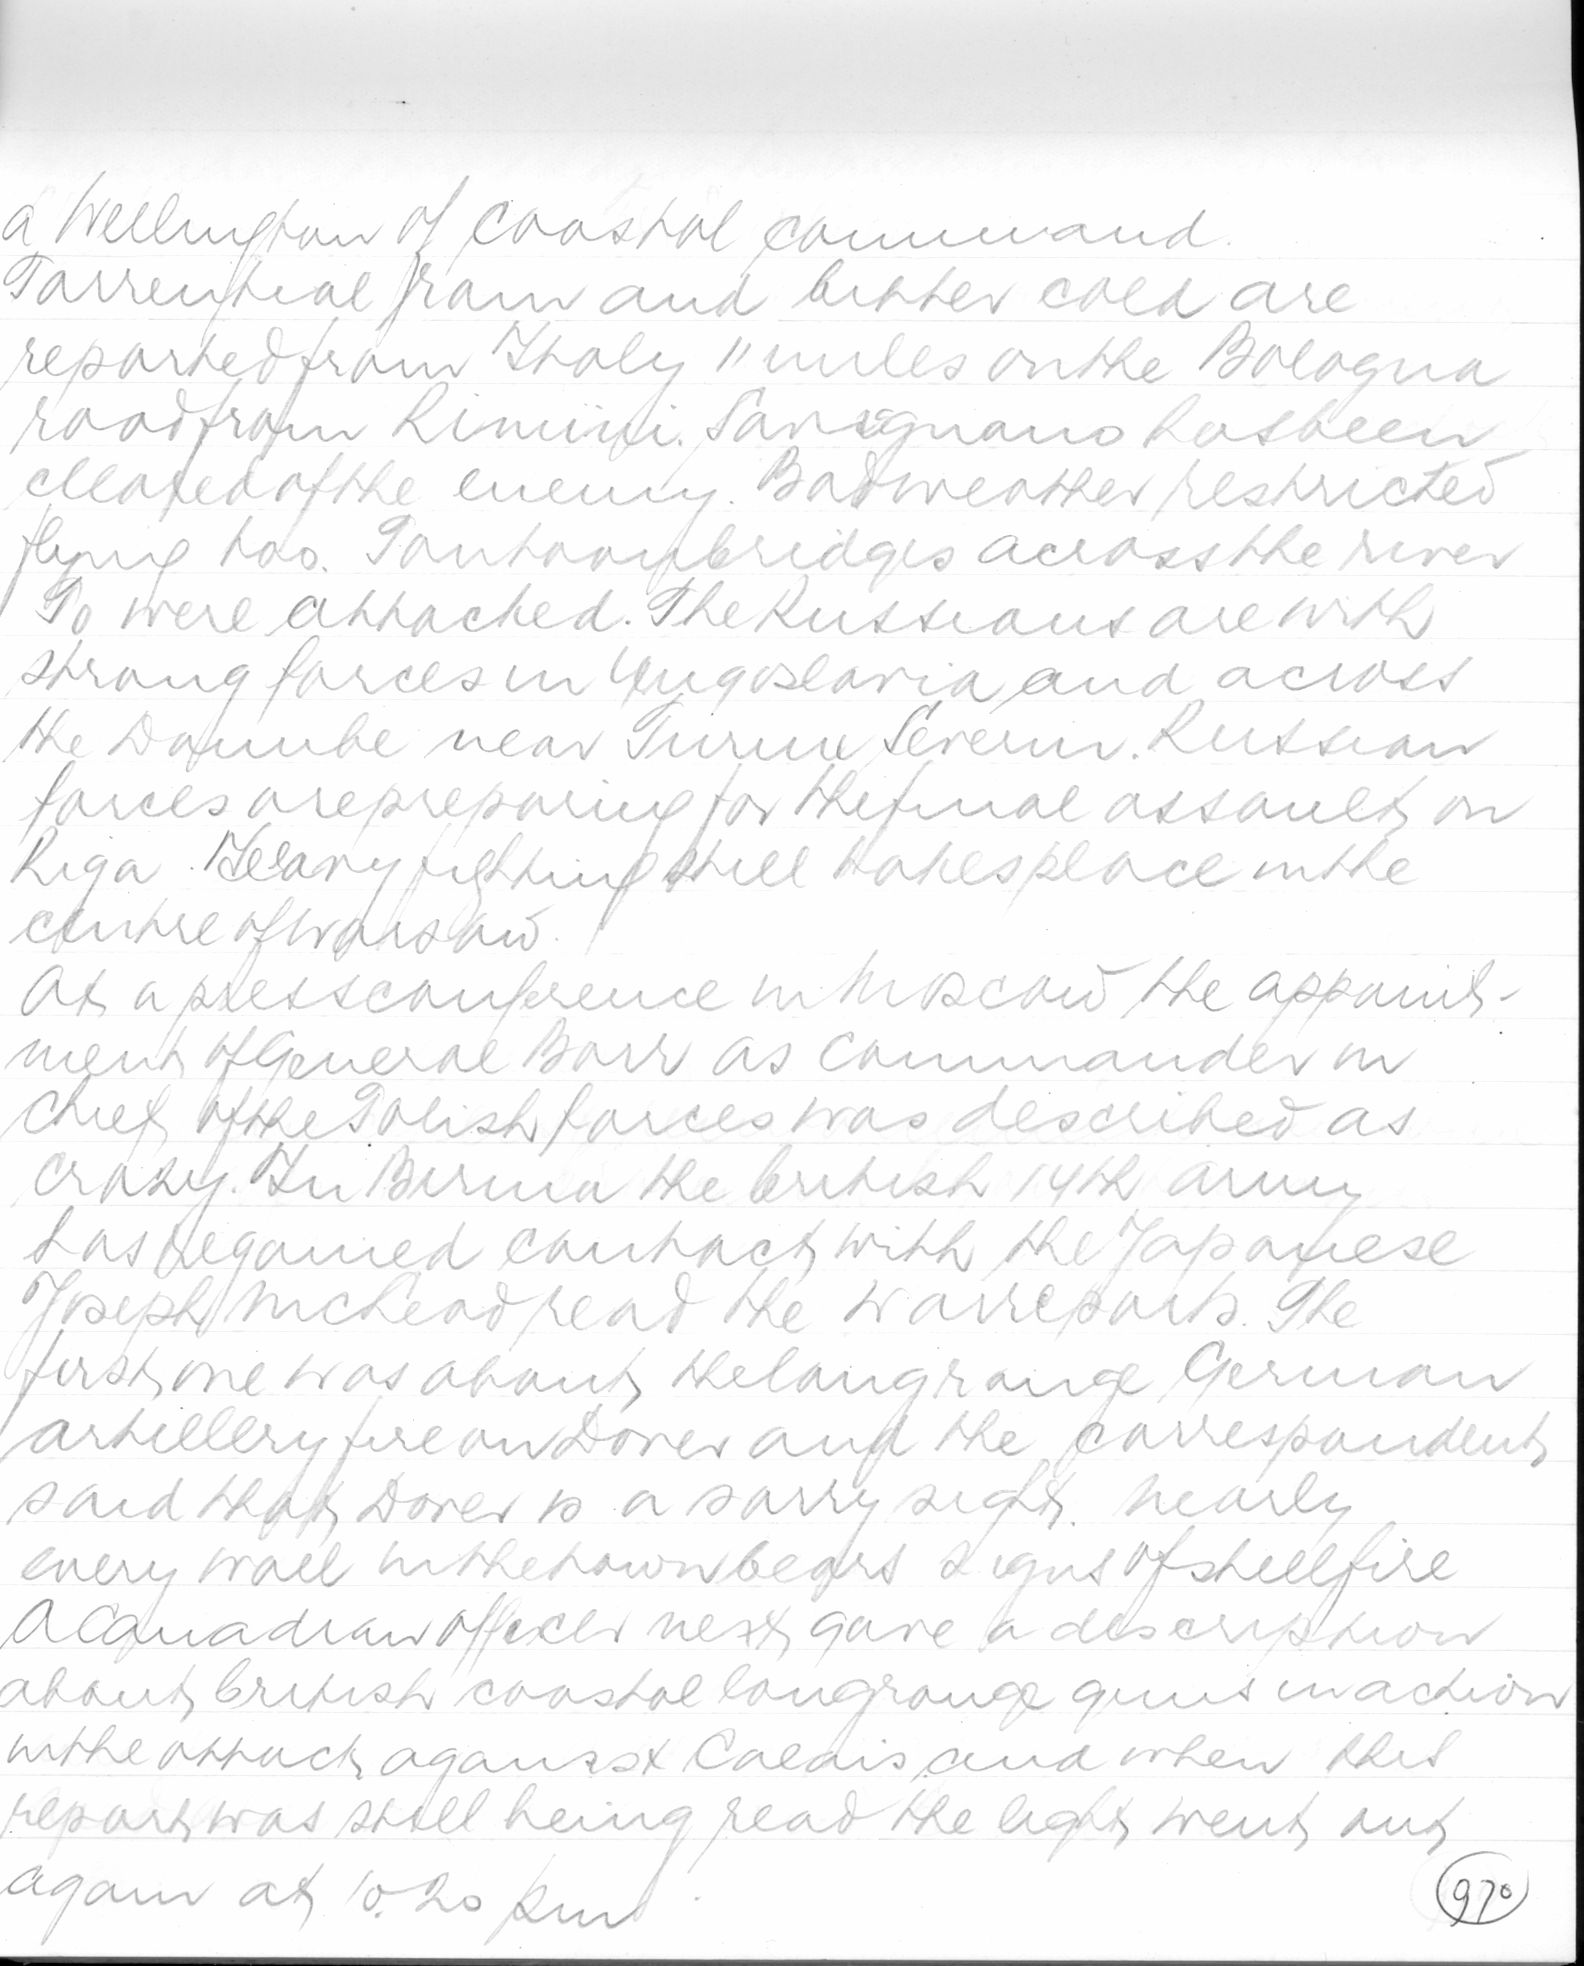 a Wellington of Coastal command.
Torrential rain and bitter cold are
reported from Italy 11 miles on the Bologna
road from Rimini. Savignano has been
cleared of the enemy. Bad weather restricted
flying too. Pontoonbridges across the river
Po were attacked. The Russians are with
strong forces in Yugoslavia and across
the Danube near Turnu Severin. Russian
forces are preparing for the final assault on
Riga. Heavy fighting still takes place in the
centre of Warsaw.
At a pressconference in Moscow the appoint-
ment of General Borr as Commander in
Chief of the Polish forces was described as
crazy. In Birma the british 14th army
has regained contact with the Japanese
Joseph McLeod read the warreports. The
first one was about the longrange German
artillery fire on Dover and the correspondent
said that Dover is a sorry sight. Nearly
every wall in the town bears signs of shellfire
A Canadian officer next gave a description
about british coastal longrange guns in action
in the attack against Calais and when this
report was still being read the light went out
again at 10.20 pm.
970